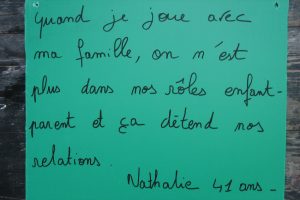 Quand je joue avec
ma famille, on n'est
plus dans nos rôles enfant-
parent et ça détend nos
relations.
Nathalie 41 ans -